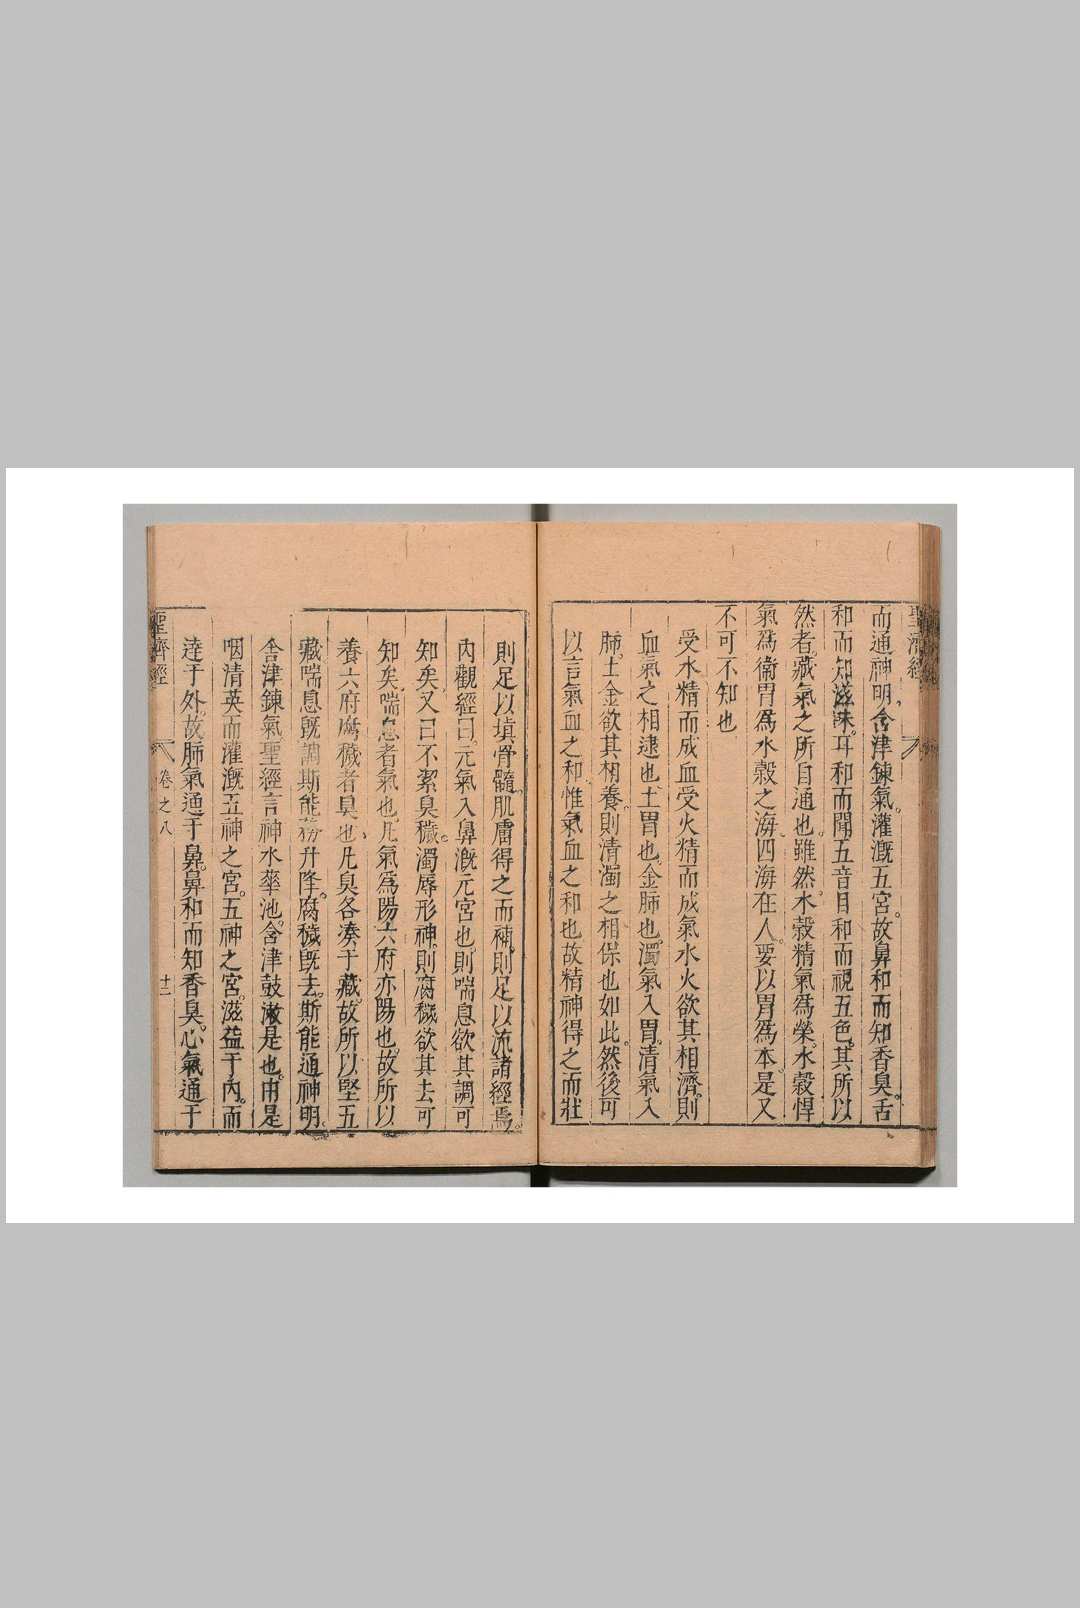 聖濟經
而通神明含津鍊氣灌漑五宮故鼻和而知香臭舌
和而知滋味耳和而聞五音目和而視五色其所以
然者藏氣之所自通也雖然水穀精氣爲榮水穀悍
氣爲衞胃爲水穀之海四海在人要以胃爲本是又
不可不知也
受水精而成血受火精而成氣水火欲其相濟則
血氣之相逮也土胃也金肺也濁氣入胃清氣入
肺土金欲其相養則清濁之相保也如此然後可
以言氣血之和惟氣血之和也故精神得之而壯
則足以塡骨髓肌膚得之而補則足以流諸經焉
內觀經曰元氣入鼻漑元宮也則喘息欲其調可
知矣又曰不絜臭穢濁辱形神則腐穢欲其去可
知矣喘息者氣也凡氣爲陽六府亦陽也故所以
養六府腐穢者臭也凡臭各湊于藏故所以堅五
藏喘息旣調斯能升降腐穢旣去斯能通神明
含津鍊氣聖經言神水華池含津鼓漱是也由是
咽清英而灌漑五神之宮五神之宮滋益于內而
達于外故肺氣通于鼻鼻和而知香臭心氣通于
聖濟經
卷之八
十二